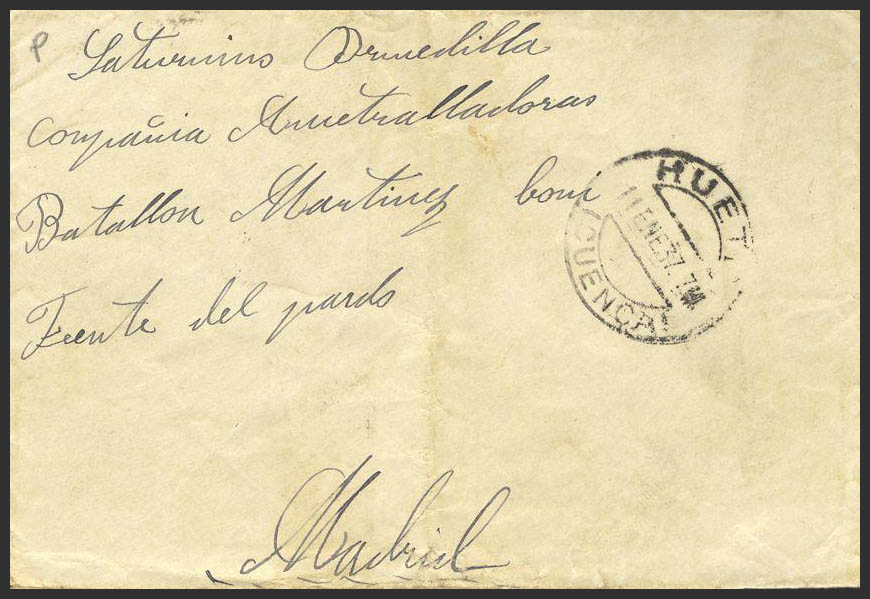 P
Saturnino Ormedilla
Compañia Ametralladoras
Batallon Martinez bom
Frente del pardo
Madrid
HUETE
11 ENE 37. 7M
(CUENCA)